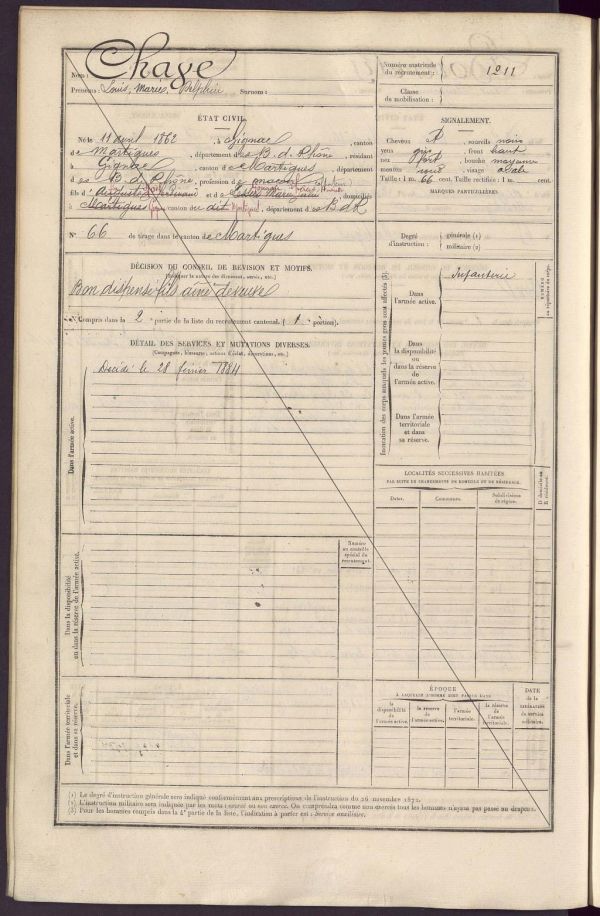 Nom : Chave
Prénoms : Louis, Marius, Delphin Surnom :
Numéro matricule du recrutement : 1211
Classe de mobilisation :
ÉTAT CIVIL.
Né le 11 avril 1862, à Gignac, canton
de Martigues, département des B. d. Rhône, résidant
à Gignac, canton de Martigues
des B. d. Rhône, profession de maçon
fils d' Auguste et de Marie Julie, domiciliés
à Martigues canton du dit, département des B d R
N° 66 de tirage dans le canton de Martigues
SIGNALEMENT.
Cheveux , sourcils noirs
yeux gris, front haut
nez fort, bouche moyenne
menton rond, visage ovale
Taille : 1 m. 66 cent. Taille rectifiée : 1 m. cent.
MARQUES PARTICULIÈRES.
Degré d'instruction : générale (1)
militaire (2)
DÉCISION DU CONSEIL DE REVISION ET MOTIFS.
Bon dispensé fils aîné de veuve
Compris dans la 2e partie de la liste du recrutement cantonal. (1 portion).
DÉTAIL DES SERVICES ET MUTATIONS DIVERSES.
(Campagnes, blessures, actions d'éclat, décorations, etc.)
Dans l'armée active.
Décédé le 28 février 1884
Dans la disponibilité ou dans la réserve de l'armée active.
Numéro au contrôle spécial du recrutement.
Dans l'armée territoriale et dans sa réserve.
Indication des corps auxquels les jeunes gens sont affectés (3)
Dans l'armée active.
Infanterie
Dans la disponibilité ou dans la réserve de l'armée active.
Dans l'armée territoriale et dans sa réserve.
LOCALITÉS SUCCESSIVES HABITÉES
PAR SUITE DE CHANGEMENTS DE DOMICILE OU DE RÉSIDENCE.
Dates. Communes. Subdivisions de région. D domicile ou R résidence.
ÉPOQUE
À LAQUELLE L'HOMME DOIT PASSER DANS
la disponibilité de l'armée active. la réserve de l'armée active. l'armée territoriale. la réserve de l'armée territoriale.
DATE de la LIBÉRATION du service militaire.
(1) Le degré d'instruction générale sera indiqué conformément aux prescriptions de l'instruction du 26 novembre 1872.
(2) L'instruction militaire sera indiquée par les mots : exercé ou non exercé. On comprendra comme non exercés tous les hommes n'ayant pas passé au drapeau.
(3) Pour les hommes compris dans la 4e partie de la liste, l'indication à porter est : Service auxiliaire.